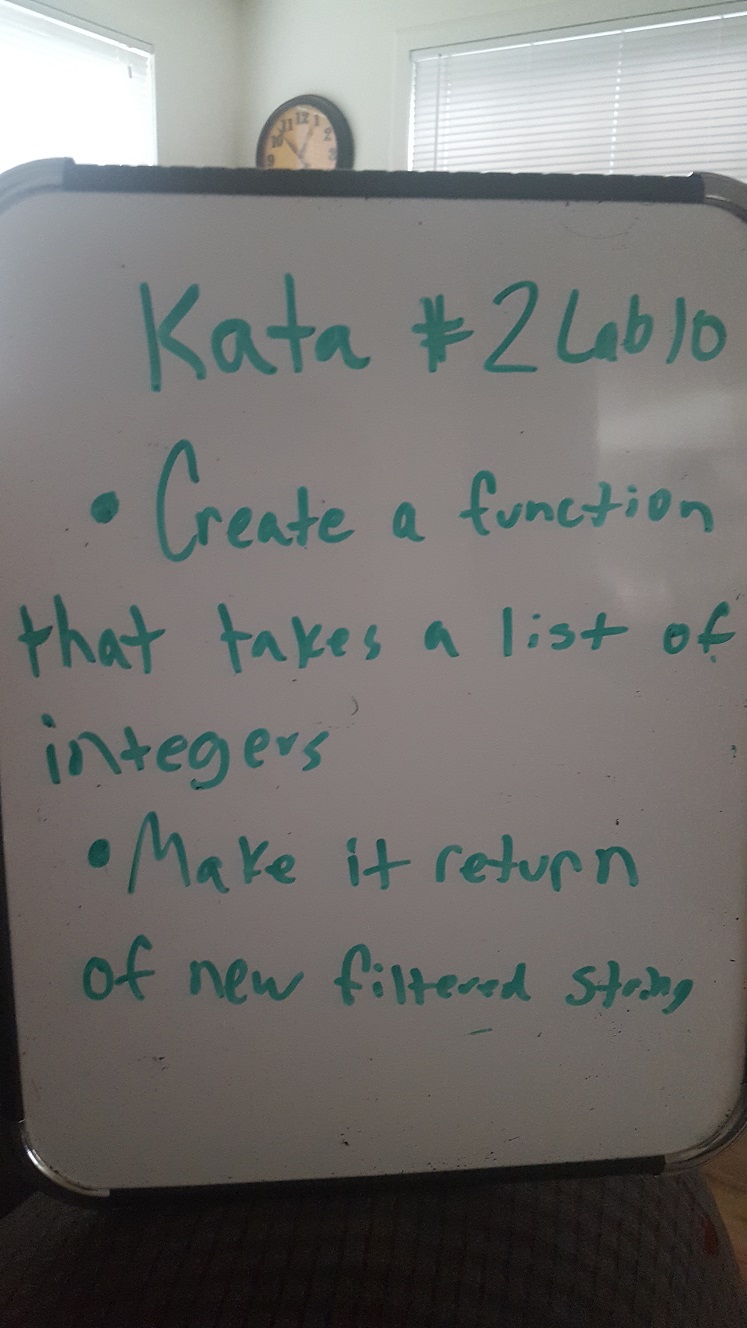 11 12 1
10 2
9 3
Kata #2 Lab 10
• Create a function
that takes a list of
integers
• Make it return
of new filtered string